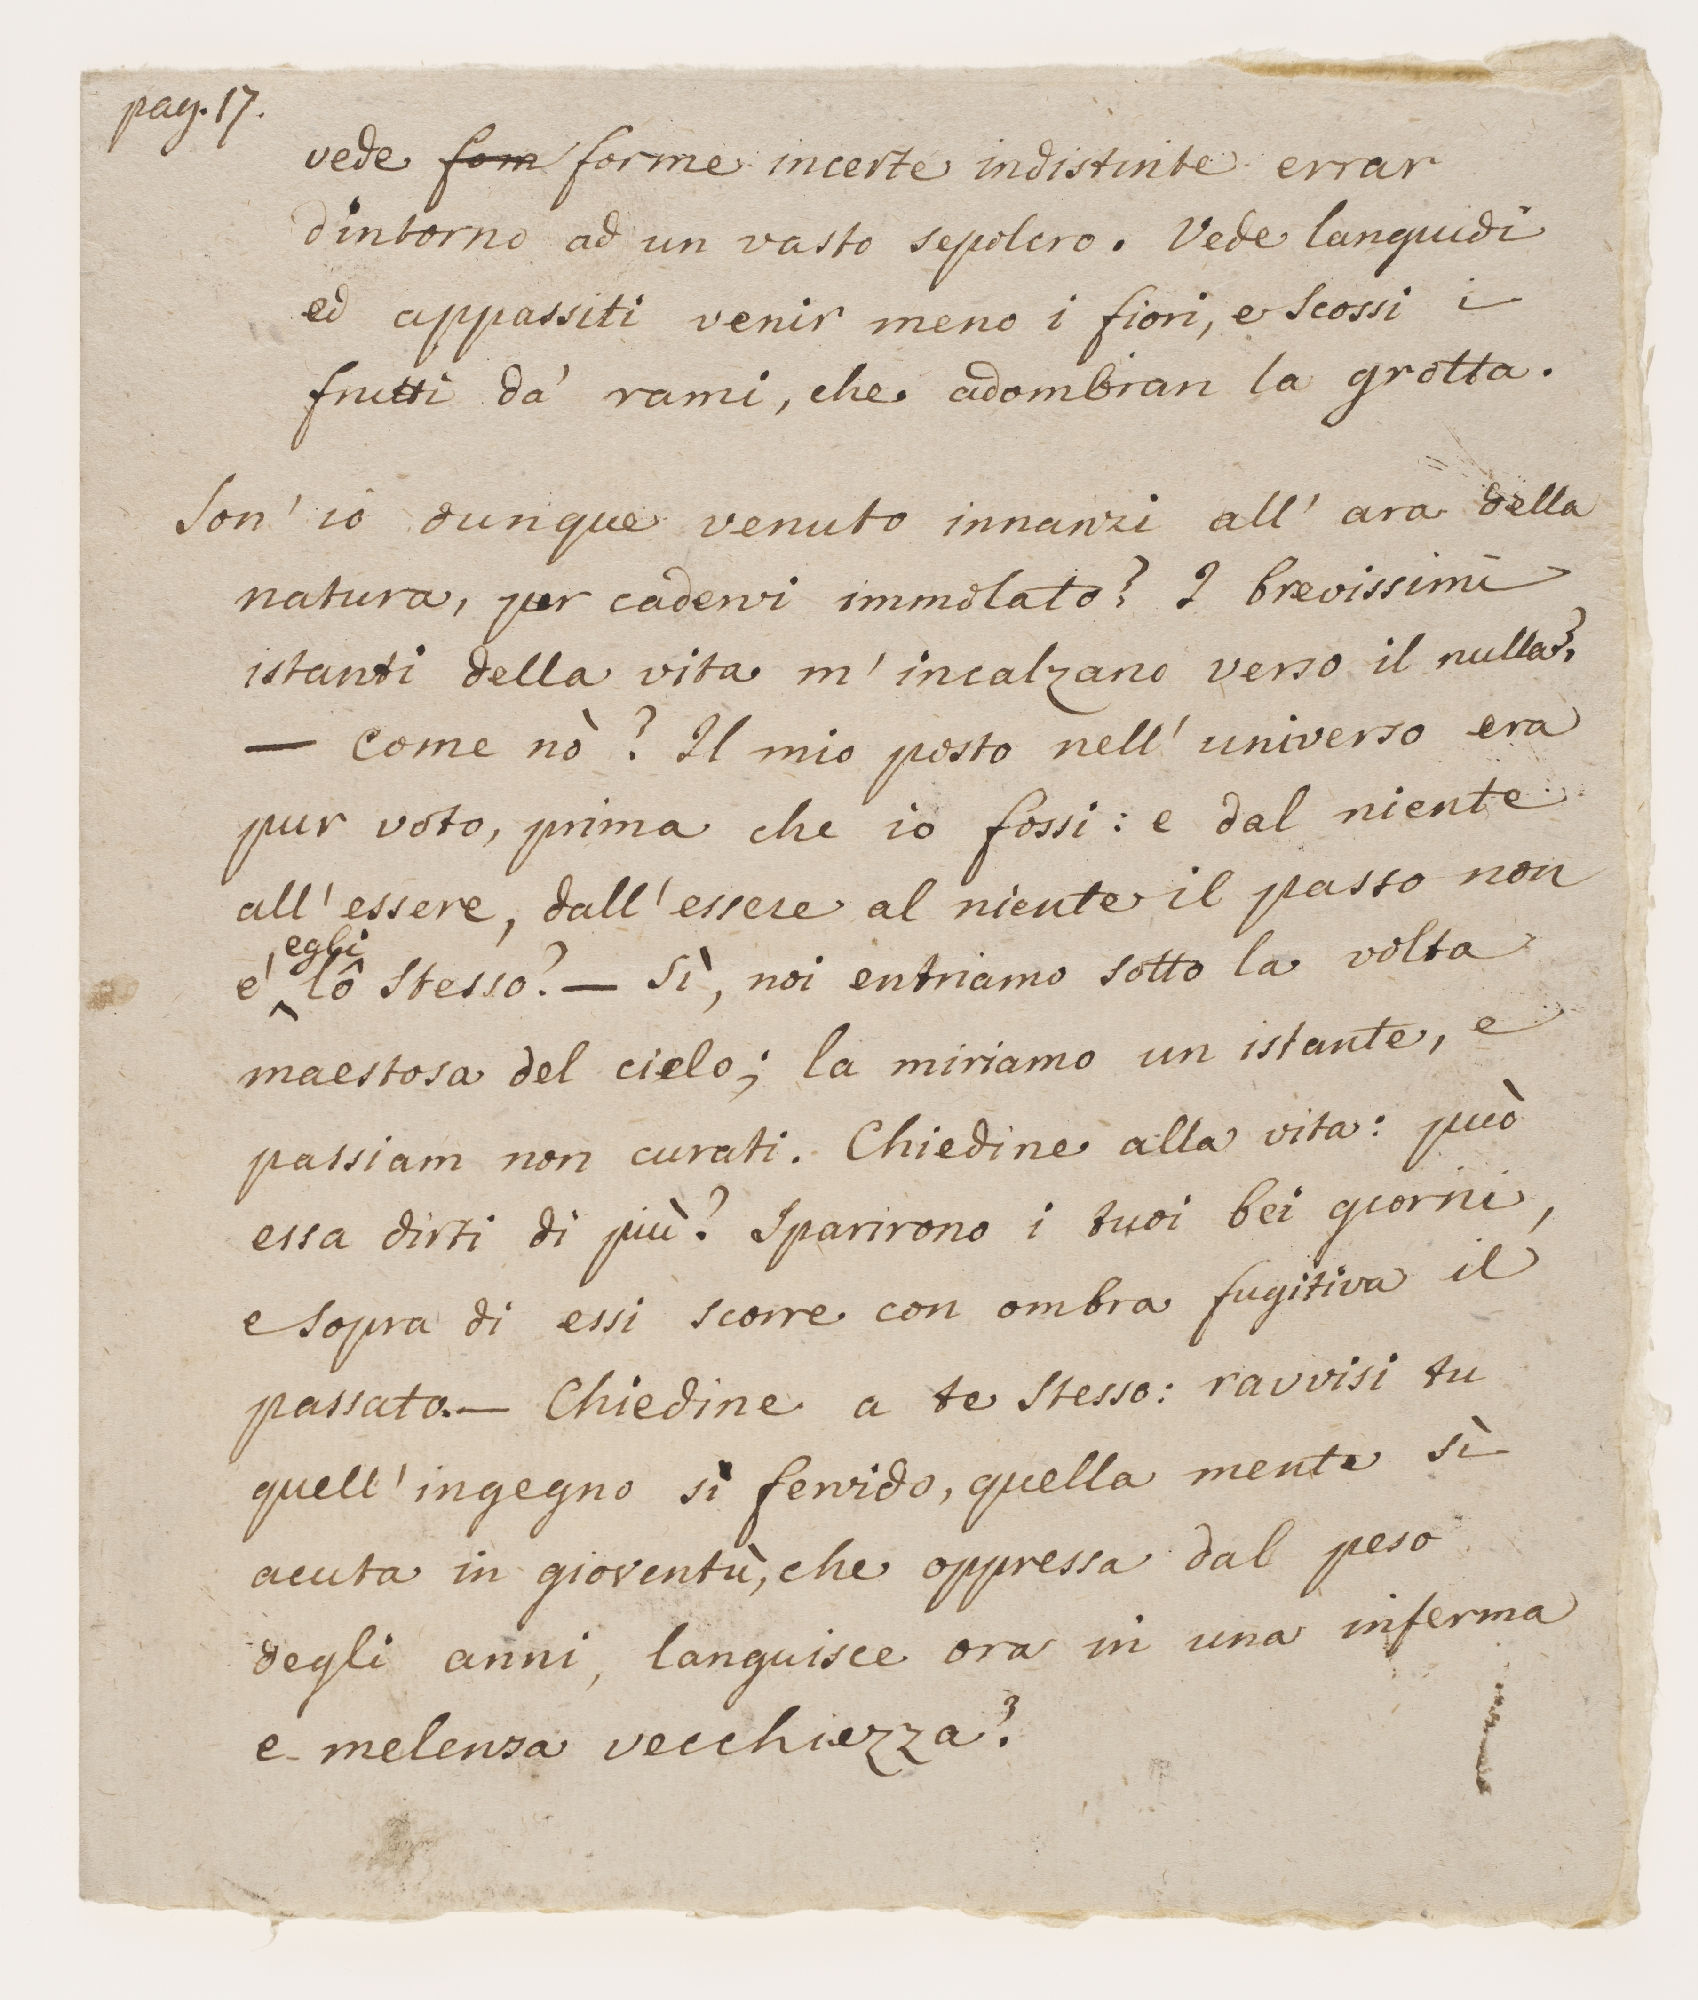 pag. 17.
vede fom forme incerte indistinte errar
dintorno ad un vasto sepolcro. Vede languidi
ed appassiti venir meno i fiori, e scossi i
frutti da' rami, che adombran la grotta.
Son' io dunque venuto innanzi all' ara della
natura, per cadervi immolato? I brevissimi
istanti della vita m' incalzano verso il nulla?
— Come nò? Il mio posto nell' universo era
pur voto, prima che io fossi: e dal niente
all' essere, dall' essere al niente il passo non
e' egli lô stesso? — Sì, noi entriamo sotto la volta
maestosa del cielo; la miriamo un istante, e
passiam non curati. Chiedine alla vita: può
essa dirti di più? Sparirono i tuoi bei giorni,
e sopra di essi scorre con ombra fugitiva il
passato. — Chiedine a te stesso: ravvisi tu
quell' ingegno sì fervido, quella mente sì
acuta in gioventù, che oppressa dal peso
degli anni, languisce ora in una inferma
e melensa vecchiezza?